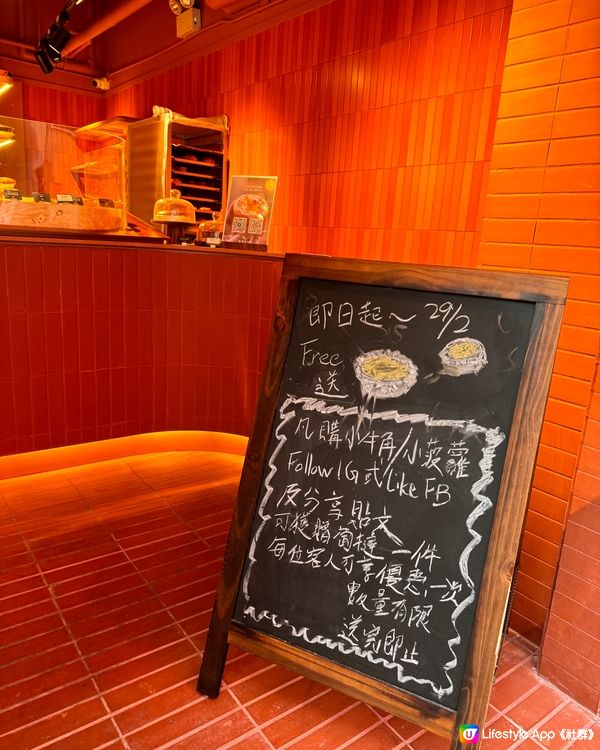 即日起～ 29/2
Free
送
凡購小牛角/小菠蘿
Follow IG 或 Like FB
及分享貼文
可獲贈葡撻一件
每位客人可享優惠一次
數量有限
送完即止
Lifestyle App《社群》